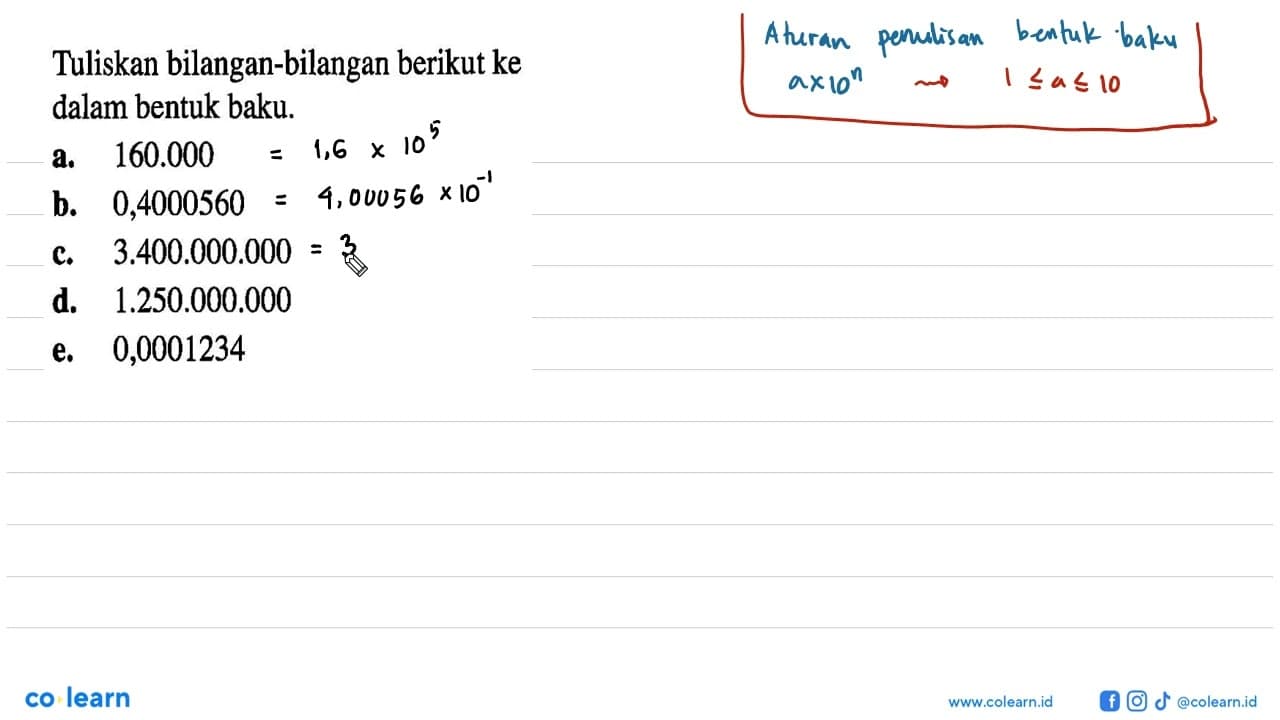 Aturan penulisan bentuk baku
a×10ⁿ → 1 ≤ a ≤ 10
Tuliskan bilangan-bilangan berikut ke
dalam bentuk baku.
a. 160.000 = 1,6 × 10⁵
b. 0,4000560 = 4,00056 × 10⁻¹
c. 3.400.000.000 = 3
d. 1.250.000.000
e. 0,0001234
co learn
www.colearn.id @colearn.id